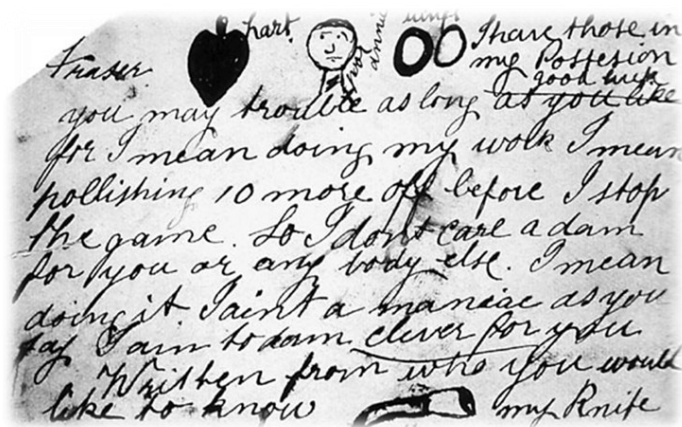 hart.
poor annie
rings
I have those in
my Possesion
good luck
Fraser
you may trouble as long as you like
for I mean doing my work I mean
pollishing 10 more off before I stop
the game. So I dont care a dam
for you or any body else. I mean
doing it I aint a maniac as you
say I am to dam clever for you
Written from who you would
like to know
my Knife